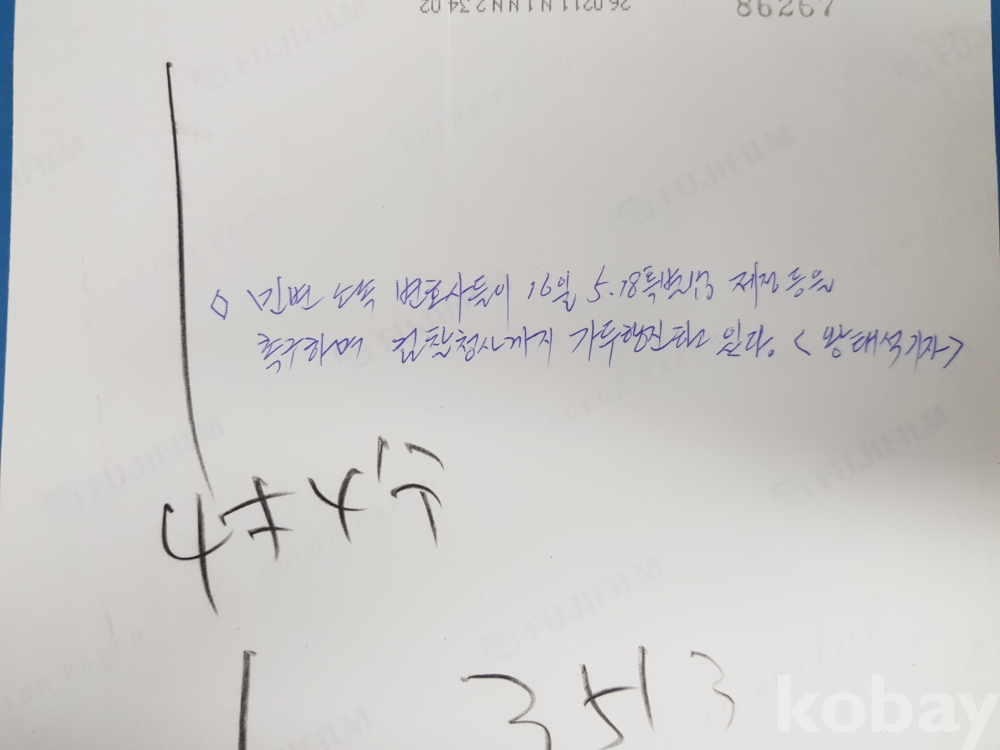 86267
26 0211 N1 NNN 2 34 02
◇ 민변 소속 변호사들이 16일 5.18특별법 제정등을
촉구하며 검찰청사까지 가두행진하고 있다. <왕태석기자>
3513
FUJIFILM
COLOR PAPER
kobay